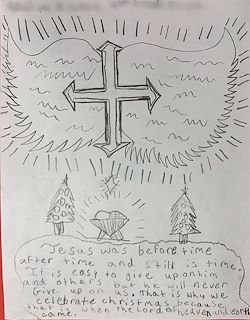 Jesus was before time
after time and still is time.
It is easy to give up on him
and others but he will never
Give up on us. That is why we
celebrate christmas because
that is when the Lord of heaven and earth
came.